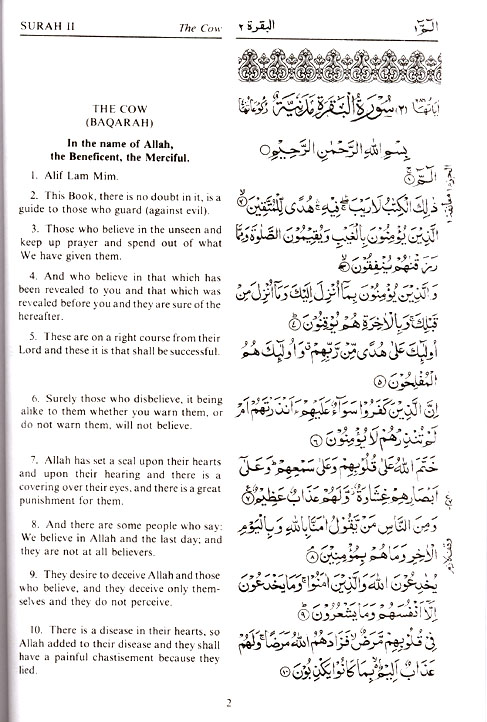 SURAH II
The Cow
البقرة ٢
الٓمّٓ ١
THE COW
(BAQARAH)
In the name of Allah,
the Beneficent, the Merciful.
1. Alif Lam Mim.
2. This Book, there is no doubt in it, is a
guide to those who guard (against evil).
3. Those who believe in the unseen and
keep up prayer and spend out of what
We have given them.
4. And who believe in that which has
been revealed to you and that which was
revealed before you and they are sure of the
hereafter.
5. These are on a right course from their
Lord and these it is that shall be successful.
6. Surely those who disbelieve, it being
alike to them whether you warn them, or
do not warn them, will not believe.
7. Allah has set a seal upon their hearts
and upon their hearing and there is a
covering over their eyes, and there is a great
punishment for them.
8. And there are some people who say:
We believe in Allah and the last day; and
they are not at all believers.
9. They desire to deceive Allah and those
who believe, and they deceive only them-
selves and they do not perceive.
10. There is a disease in their hearts, so
Allah added to their disease and they shall
have a painful chastisement because they
lied.
سُوْرَةُ الْبَقَرَةِ مَدَنِيَّةٌ
بِسْمِ اللهِ الرَّحْمٰنِ الرَّحِيْمِ
الٓمّٓ ۱
ذٰلِكَ الْكِتٰبُ لَا رَيْبَ فِيْهِ هُدًى لِّلْمُتَّقِيْنَ ۲
الَّذِيْنَ يُؤْمِنُوْنَ بِالْغَيْبِ وَيُقِيْمُوْنَ الصَّلٰوةَ وَمِمَّا
رَزَقْنٰهُمْ يُنْفِقُوْنَ ۳
وَالَّذِيْنَ يُؤْمِنُوْنَ بِمَآ اُنْزِلَ اِلَيْكَ وَمَآ اُنْزِلَ مِنْ
قَبْلِكَ وَبِالْاٰخِرَةِ هُمْ يُوْقِنُوْنَ ۴
اُولٰٓئِكَ عَلٰى هُدًى مِّنْ رَّبِّهِمْ وَاُولٰٓئِكَ هُمُ
الْمُفْلِحُوْنَ ۵
اِنَّ الَّذِيْنَ كَفَرُوْا سَوَآءٌ عَلَيْهِمْ ءَاَنْذَرْتَهُمْ اَمْ
لَمْ تُنْذِرْهُمْ لَا يُؤْمِنُوْنَ ۶
خَتَمَ اللهُ عَلٰى قُلُوْبِهِمْ وَعَلٰى سَمْعِهِمْ وَعَلٰٓى
اَبْصَارِهِمْ غِشَاوَةٌ وَّلَهُمْ عَذَابٌ عَظِيْمٌ ۷
وَمِنَ النَّاسِ مَنْ يَّقُوْلُ اٰمَنَّا بِاللهِ وَبِالْيَوْمِ
الْاٰخِرِ وَمَا هُمْ بِمُؤْمِنِيْنَ ۸
يُخٰدِعُوْنَ اللهَ وَالَّذِيْنَ اٰمَنُوْا وَمَا يَخْدَعُوْنَ
اِلَّآ اَنْفُسَهُمْ وَمَا يَشْعُرُوْنَ ۹
فِيْ قُلُوْبِهِمْ مَّرَضٌ فَزَادَهُمُ اللهُ مَرَضًا وَلَهُمْ
عَذَابٌ اَلِيْمٌ بِمَا كَانُوْا يَكْذِبُوْنَ ۱۰
2